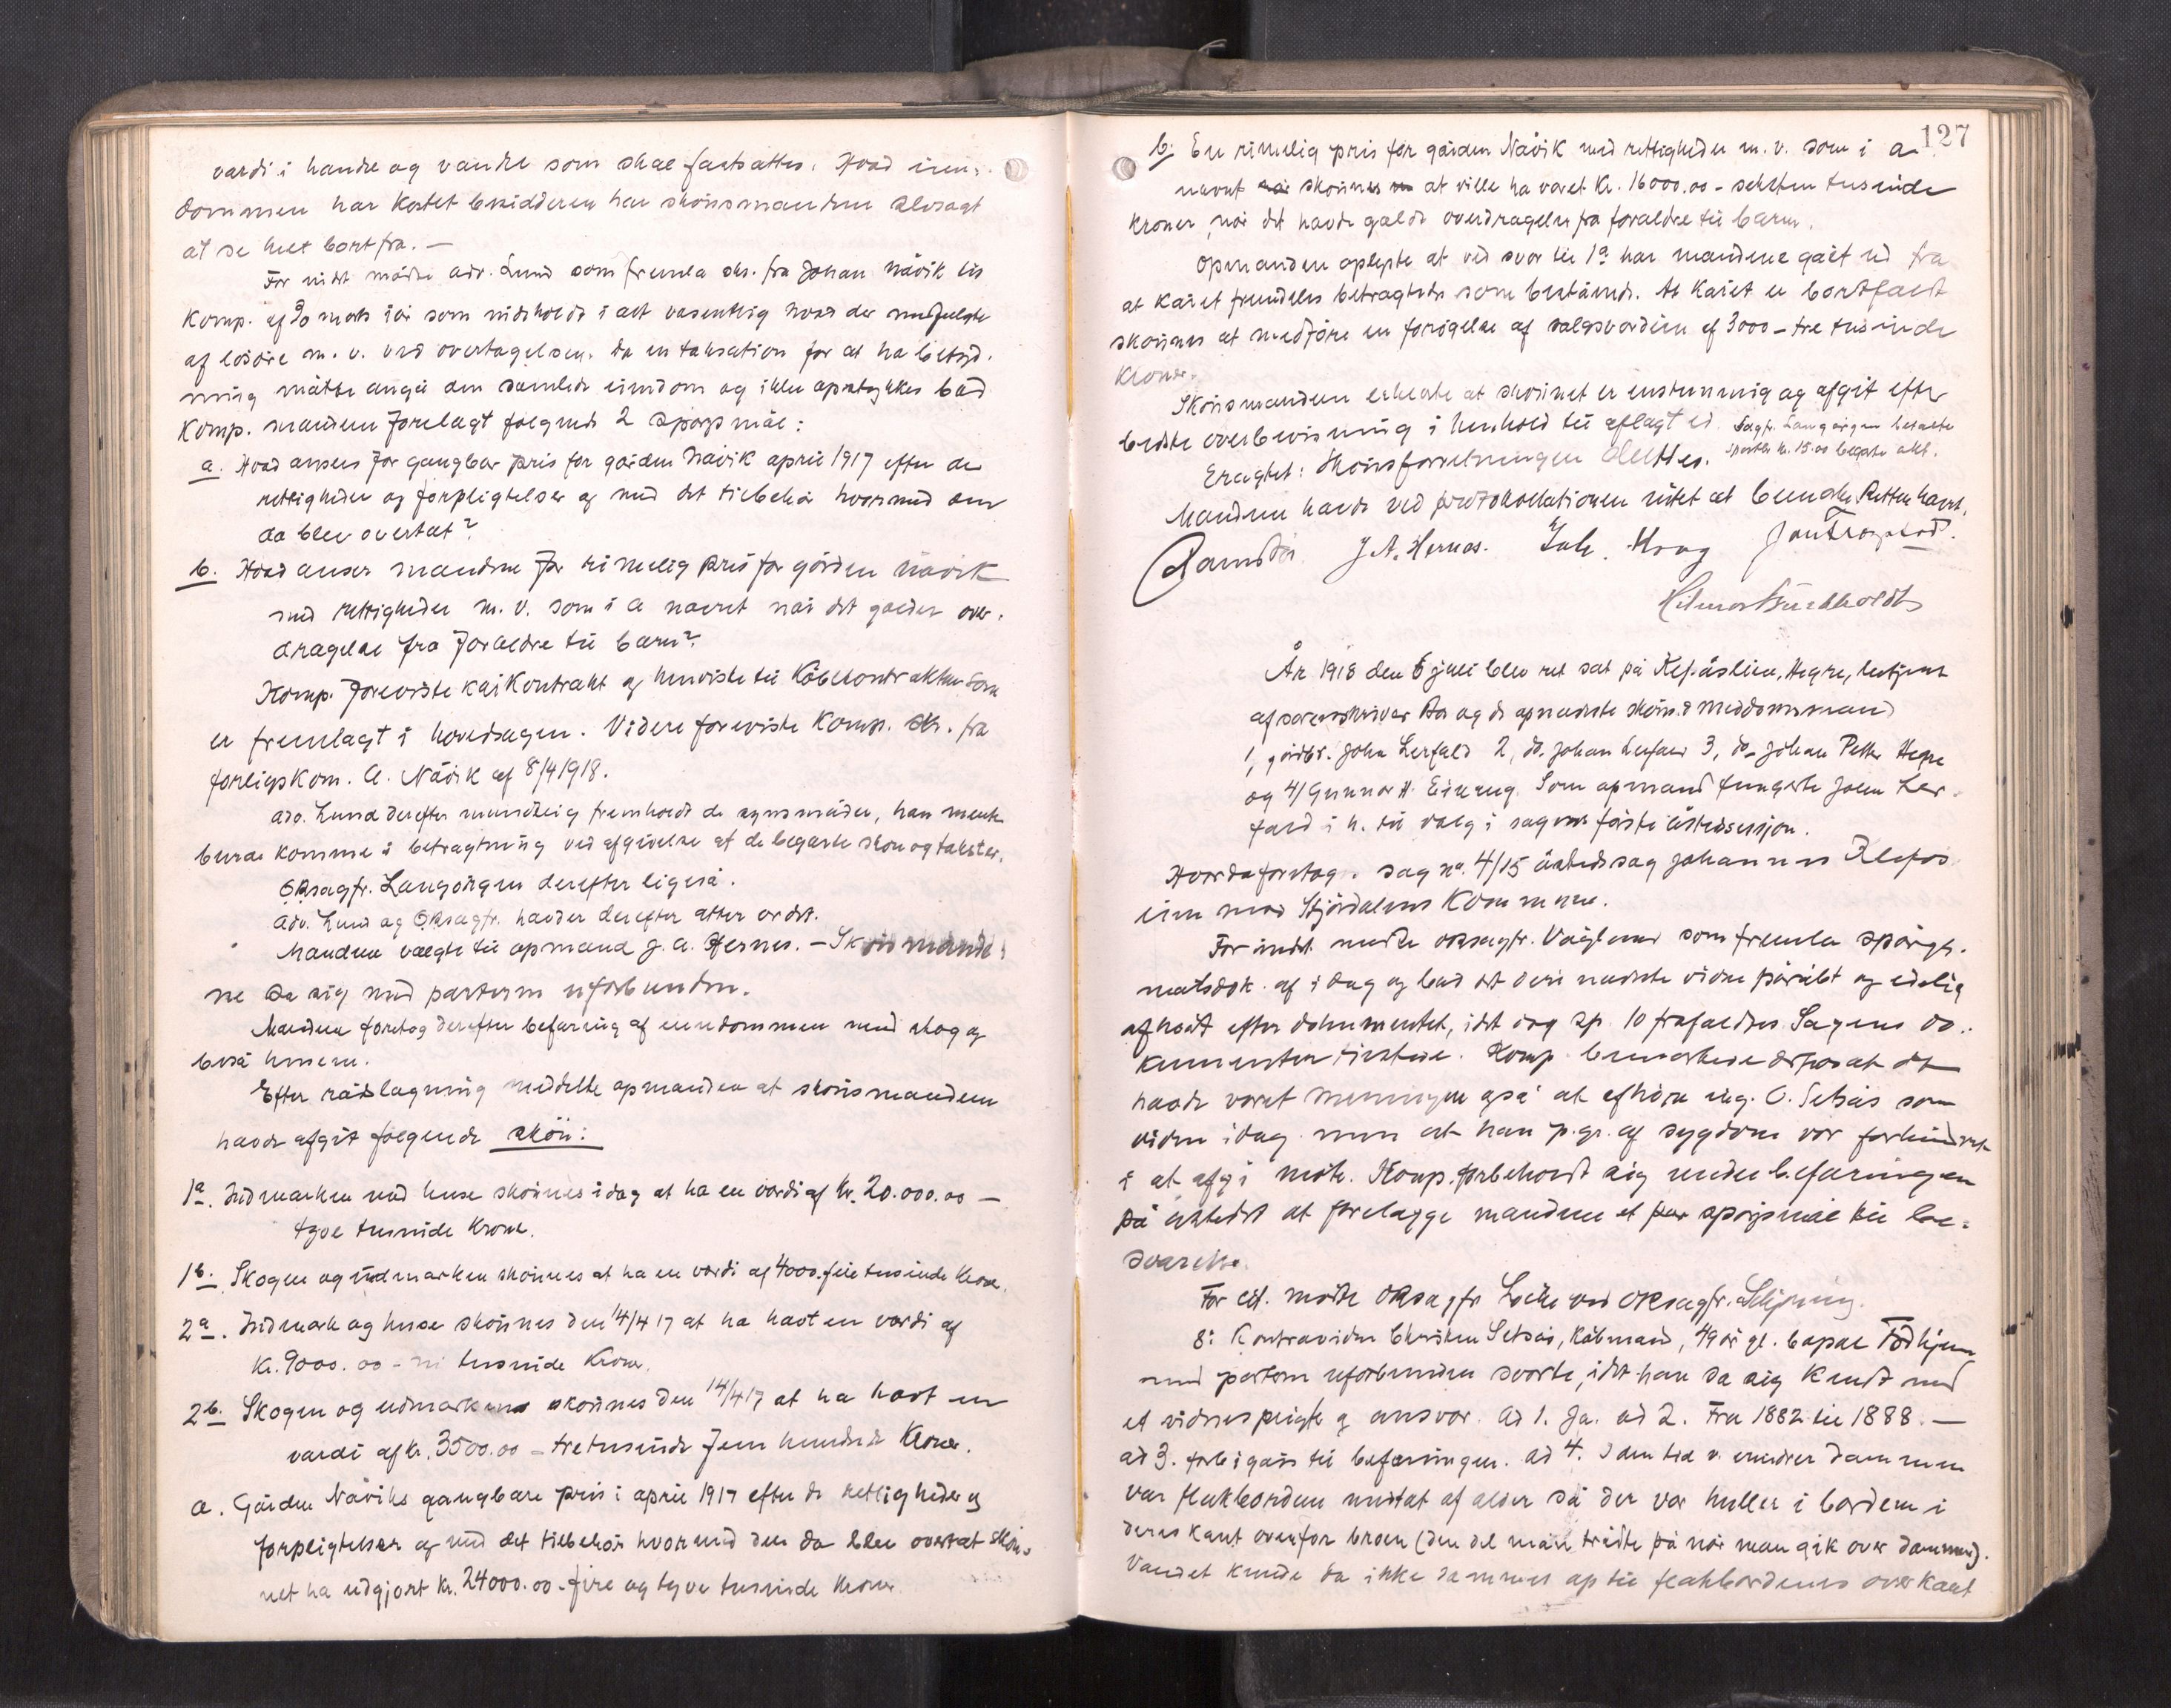 værdi i handel og vandel som skal fastsættes. Hvad eien-
dommen har kostet besidderen har skönsmændene at
at se helt bort fra. —
For mödte adv. Lund som fremla skr. fra Johan Nåvik til
Komp. af 30 mars iår som indeholdt i alt væsentlig hvad der medfulgte
af lösöre m. v. ved overtagelsen. Da en taksation for at ha betyd-
ning måtte angå den samlede eiendom og ikke opstykkes bad
Komp. mændene forelagt følgende 2 spörgsmål:
a. Hvad ansees for gangbar pris for gården Nåvik april 1917 efter de
rettigheder og forpligtelser og med det tilbehör hvormed den
da blev overtat?
b. Hvad anser mændene for rimelig pris for gården Nåvik
med rettigheder m. v. som i a nævnt når det gælder over-
dragelse fra forældre til barn?
Komp. foreviste kårkontrakt og henviste til Köbekontrakten som
er fremlagt i hovedsagen. Videre foreviste Komp. skr. fra
forligskom. A. Nåvik af 8/4 1918.
Adv. Lund derefter mundtlig fremholdt de synsmåder, han mente
burde komme i betragtning ved afgivelse af de begærte skön og takster.
ORsagfr. Langörgen derefter ligeså.
Adv. Lund og ORsagfr. havder derefter atter ordet.
Mændene valgte til opmand J. A. Hernes. — Skönsmænde-
ne sa sig med parterne uforbunden.
Mændene foretog derefter befaring af eiendommen med skog og
beså husene.
Efter rådslagning meddelte opmanden at skönsmændene
havde afgit følgende skön:
1a. Indmarken med huse skönnes idag at ha en værdi af kr. 20.000.00 —
tyve tusinde kroner.
1b. Skogen og udmarken skönnes at ha en værdi af 4000. fire tusinde kroner.
2a. Indmark og huse skönnes den 14/4 17 at ha havt en værdi af
kr. 9000.00 - ni tusinde kroner.
2b. Skogen og udmarken skönnes den 14/4 17 at ha havt en
værdi af kr. 3500.00 - tretusinde fem hundrede kroner.
a. Gården Nåviks gangbare pris i april 1917 efter de rettigheder og
forpligtelser og med det tilbehör hvormed den da blev overtat skön-
net ha udgjort kr. 24000.00 - fire og tyve tusinde kroner
127
b. En rimelig pris for gården Nåvik med rettigheder m. v. som i a
nævnt skönnes at ville ha været kr. 16000.00 - seksten tusinde
kroner, når det havde gældt overdragelse fra forældre til barn.
Opmanden oplyste at ved svar til 1a har mændene gået ud fra
at kåret fremdeles betragtedes som bestående. At kåret er bortfaldt
skönnes at medföre en forögelse af salgsværdien af 3000 - tre tusinde
kroner.
Skönsmændene erklærte at skönnet er enstemmig og afgit efter
bedste overbevisning i henhold til aflagt ed. Sagfr. Langörgen betalte
sportler kr. 15.00 begærte akt.
Eragtet: Skönsforretningen sluttes.
Mændene havde ved protokollationen intet at bemærke. Retten hævet.
J. A. Hernes. Joh. Hoag
År 1918 den 6 juli blev ret sat på Klefåslien, Hegre, betjent
af sorenskriver Bö og de opnævnte skön- & meddomsmænd
1, gårdbr. John Lerfald 2, do. Johan Lerfald 3, do. Johan Petter Hegre
og 4/ Gunnar H. Eidum. Som opmand fungerte John Ler-
fald i h. til valg i sagens förste åstedssesjon.
Hvorda foretog: Sag no. 4/15 åstedssag Johannes Klefås-
lien mod Stjördalens Kommune.
For indst. mödte oksagfr. Vaglund som fremla spörgs-
målsdok. af idag og bad det deri nævnte vidne påråbt og edelig
afhört efter dokumentet, idet dog sp. 10 frafaldtes. Sagens do-
kumenter tilstede. Komp. bemærkede derhos at det
havde været meningen også at afhöre ing. O. Setsås som
vidne idag men at han p. gr. af sygdom var forhindret
i at afgi möte. Komp. forbeholdt sig under befaringen
på åstedet at forelægge mændene et par spörgsmål til be-
svarelse.
For cit. mödte ORsagfr. Löche ved ORsagfr.
8: Kontravidne Christen Setsås, Köbmand, 49 år gl. bopæl Fådhjem
med parterne uforbunden svarte, idet han sa sig kendt med
et vidnes pligter og ansvar. Ad 1. Ja. ad 2. Fra 1882 til 1888. —
ad 3. forbigåes til befaringen. Ad 4. I den tid v. erindrer dammen
var flakbordene medtat af alder så der var huller i bordene i
deres kant ovenfor broen (den del man trådte på når man gik over dammen).
Vandet kunde da ikke dæmmes op til flakbordenes overkant